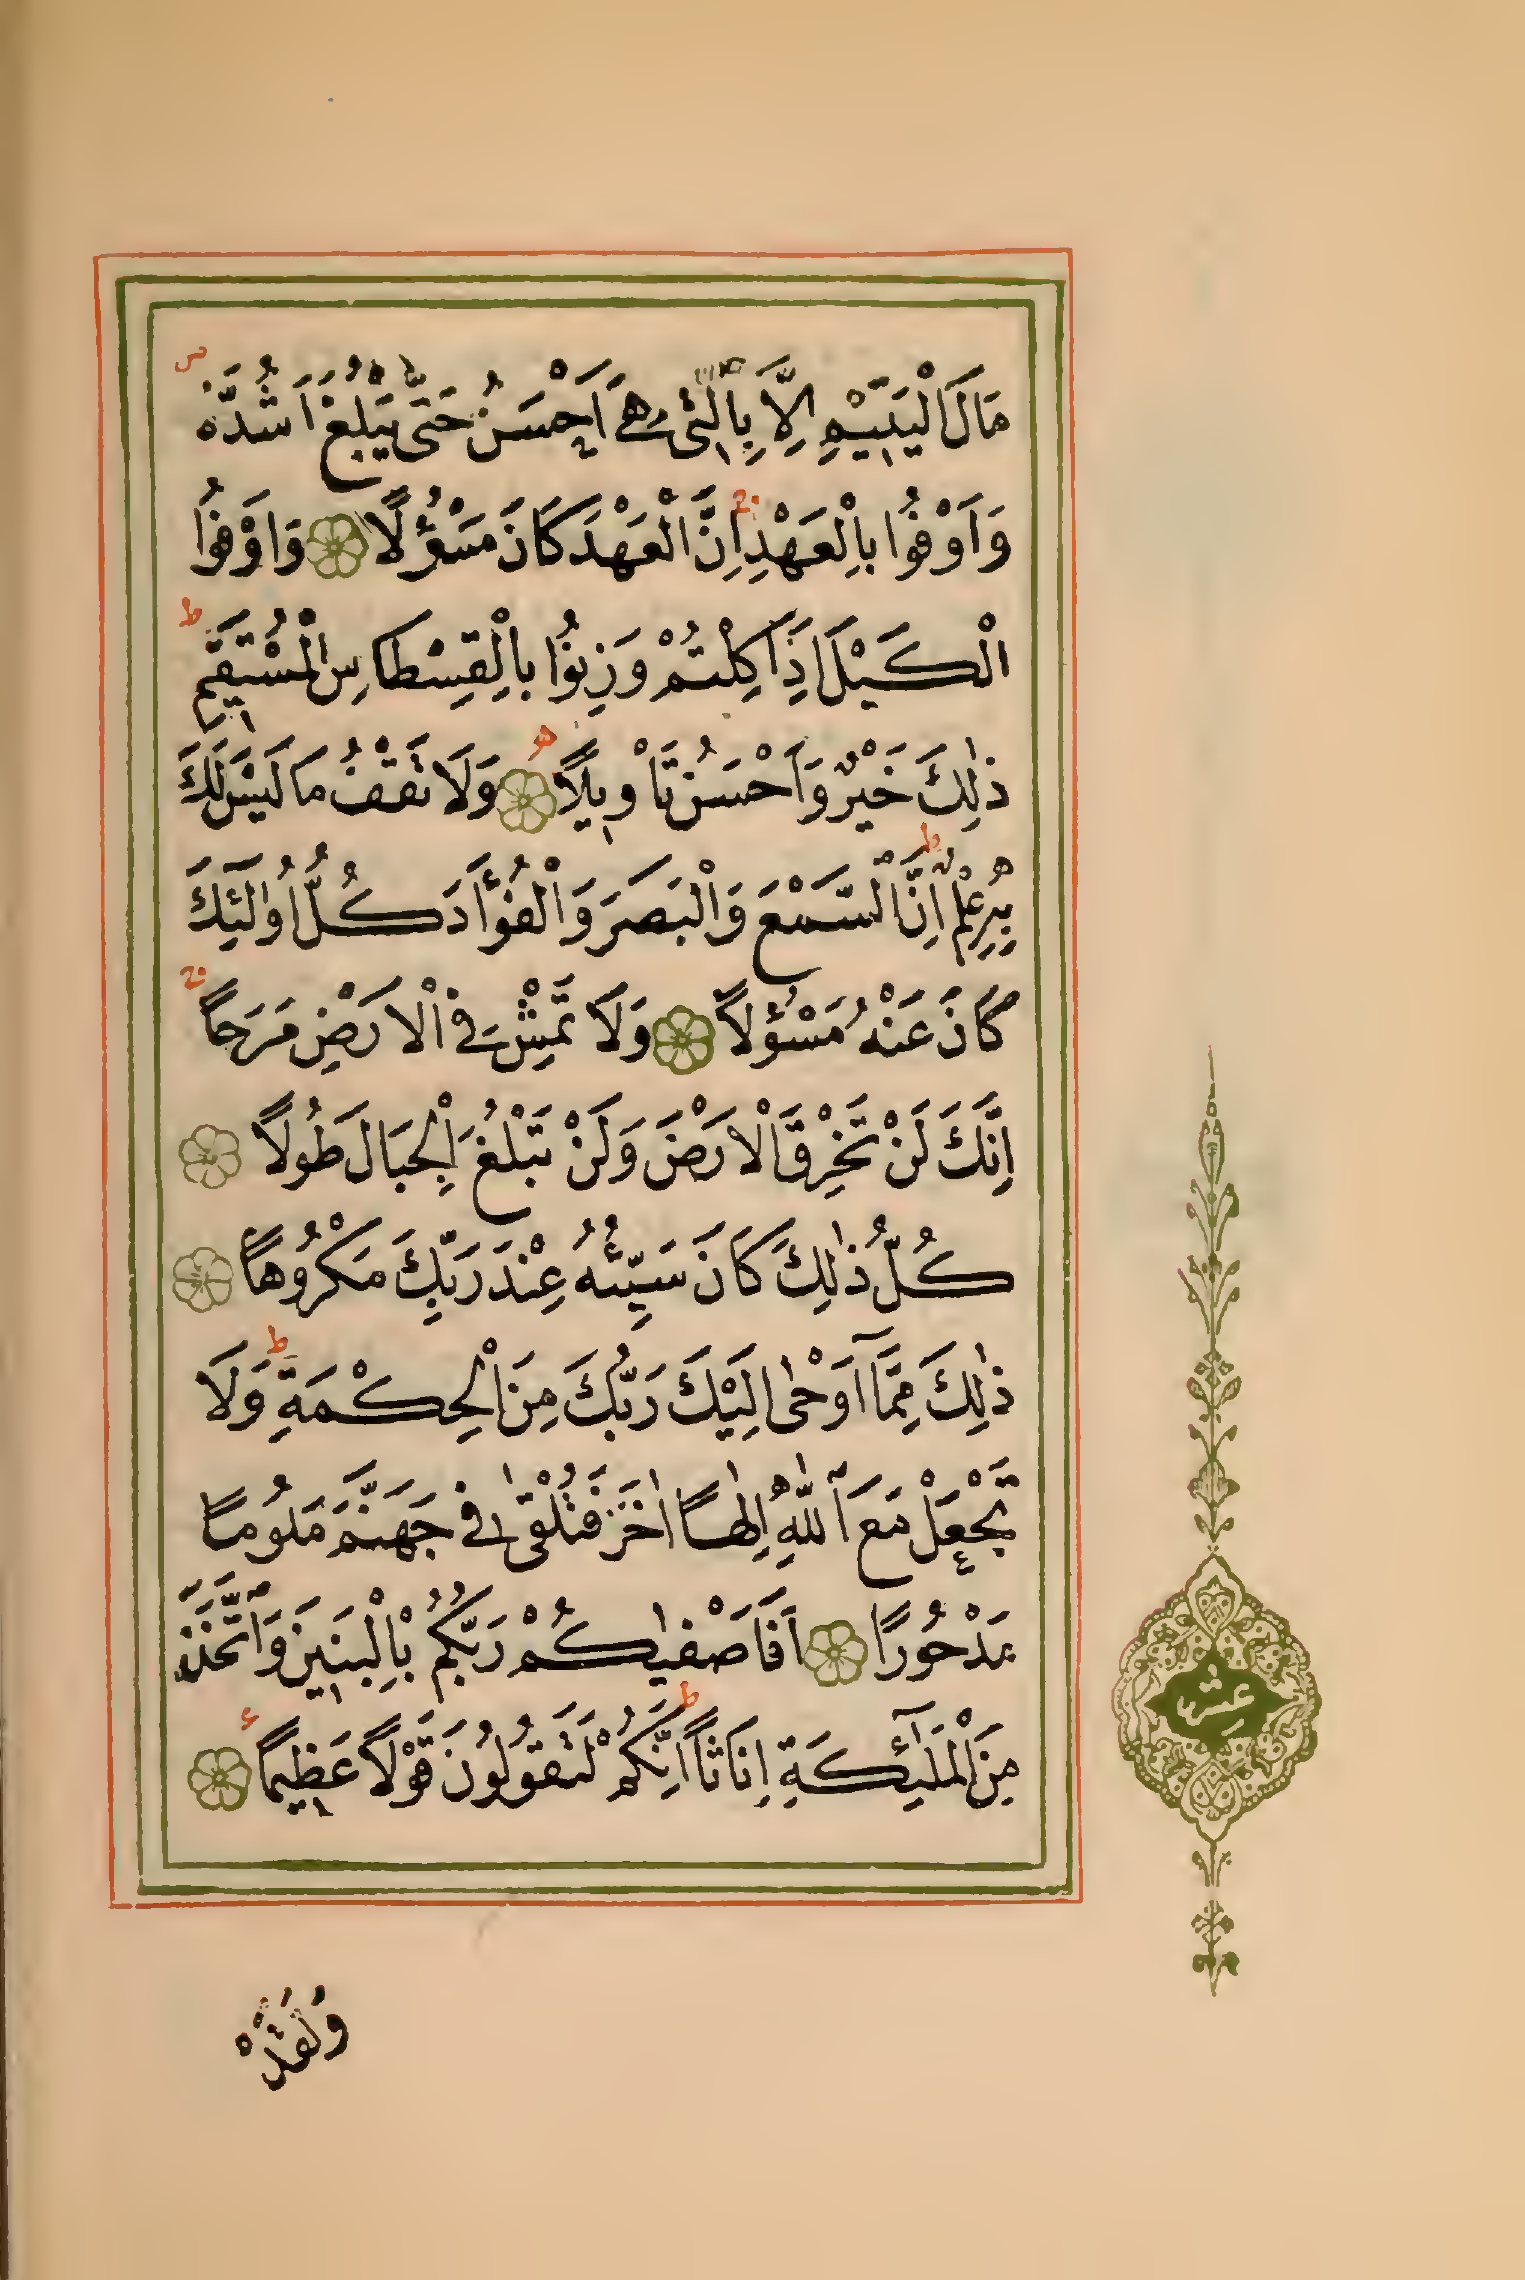 مَالَ الْيَتِيمِ اِلَّا بِالَّتِى هِىَ اَحْسَنُ حَتّٰى يَبْلُغَ اَشُدَّهُ س
وَاَوْفُوا بِالْعَهْدِ ج اِنَّ الْعَهْدَ كَانَ مَسْؤُلًا وَاَوْفُوا
الْكَيْلَ اِذَا كِلْتُمْ وَزِنُوا بِالْقِسْطَاسِ الْمُسْتَقِيمِ ط
ذٰلِكَ خَيْرٌ وَاَحْسَنُ تَاْوِيلًا وَلَا تَقْفُ مَا لَيْسَ لَكَ
بِهِ عِلْمٌ ط اِنَّ السَّمْعَ وَالْبَصَرَ وَالْفُؤَادَ كُلُّ اُولٰئِكَ
كَانَ عَنْهُ مَسْؤُلًا وَلَا تَمْشِ فِى الْاَرْضِ مَرَحًا ج
اِنَّكَ لَنْ تَخْرِقَ الْاَرْضَ وَلَنْ تَبْلُغَ الْجِبَالَ طُولًا
كُلُّ ذٰلِكَ كَانَ سَيِّئُهُ عِنْدَ رَبِّكَ مَكْرُوهًا
ذٰلِكَ مِمَّا اَوْحٰى اِلَيْكَ رَبُّكَ مِنَ الْحِكْمَةِ ط وَلَا
تَجْعَلْ مَعَ اللّٰهِ اِلٰهًا اٰخَرَ فَتُلْقٰى فِى جَهَنَّمَ مَلُومًا
مَدْحُورًا اَفَاَصْفٰيكُمْ رَبُّكُمْ بِالْبَنِينَ وَاتَّخَذَ
مِنَ الْمَلٰئِكَةِ اِنَاثًا ط اِنَّكُمْ لَتَقُولُونَ قَوْلًا عَظِيمًا ع
عشر
وَلَقَدْ